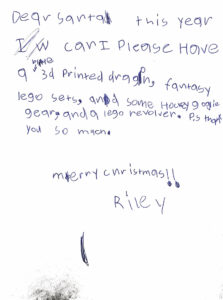 Dear santa this year
I w can I Please Have
a more 3d Printed dragn, fantasy
lego sets, and some Harey
gear, and a lego revolver. P.s thank
you so mach.
merry christmas!!
Riley